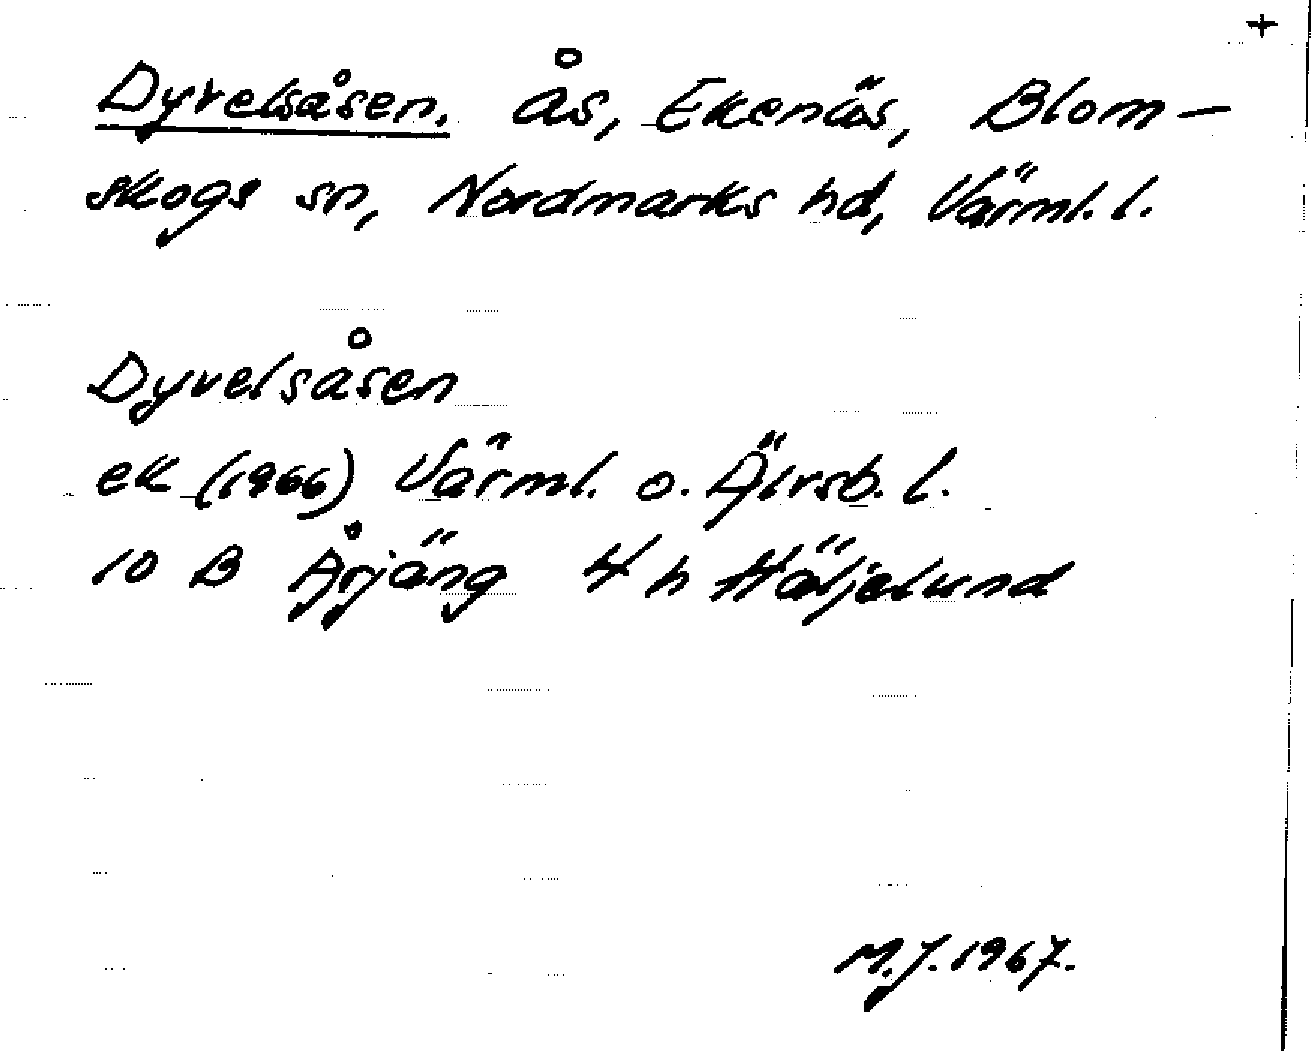 +
Dyvelsåsen. ås, Ekenäs, Blom-
skogs sn, Nordmarks hd, Värml. l.
Dyvelsåsen
ek (1966) Värml. o. Älvsb. l.
10 B Årjäng 4 h Häljelund
M.J. 1967.